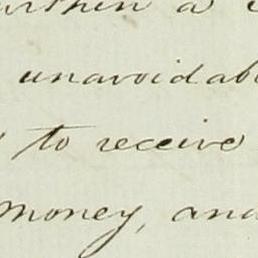 within a
unavoidab
to receive
money, and